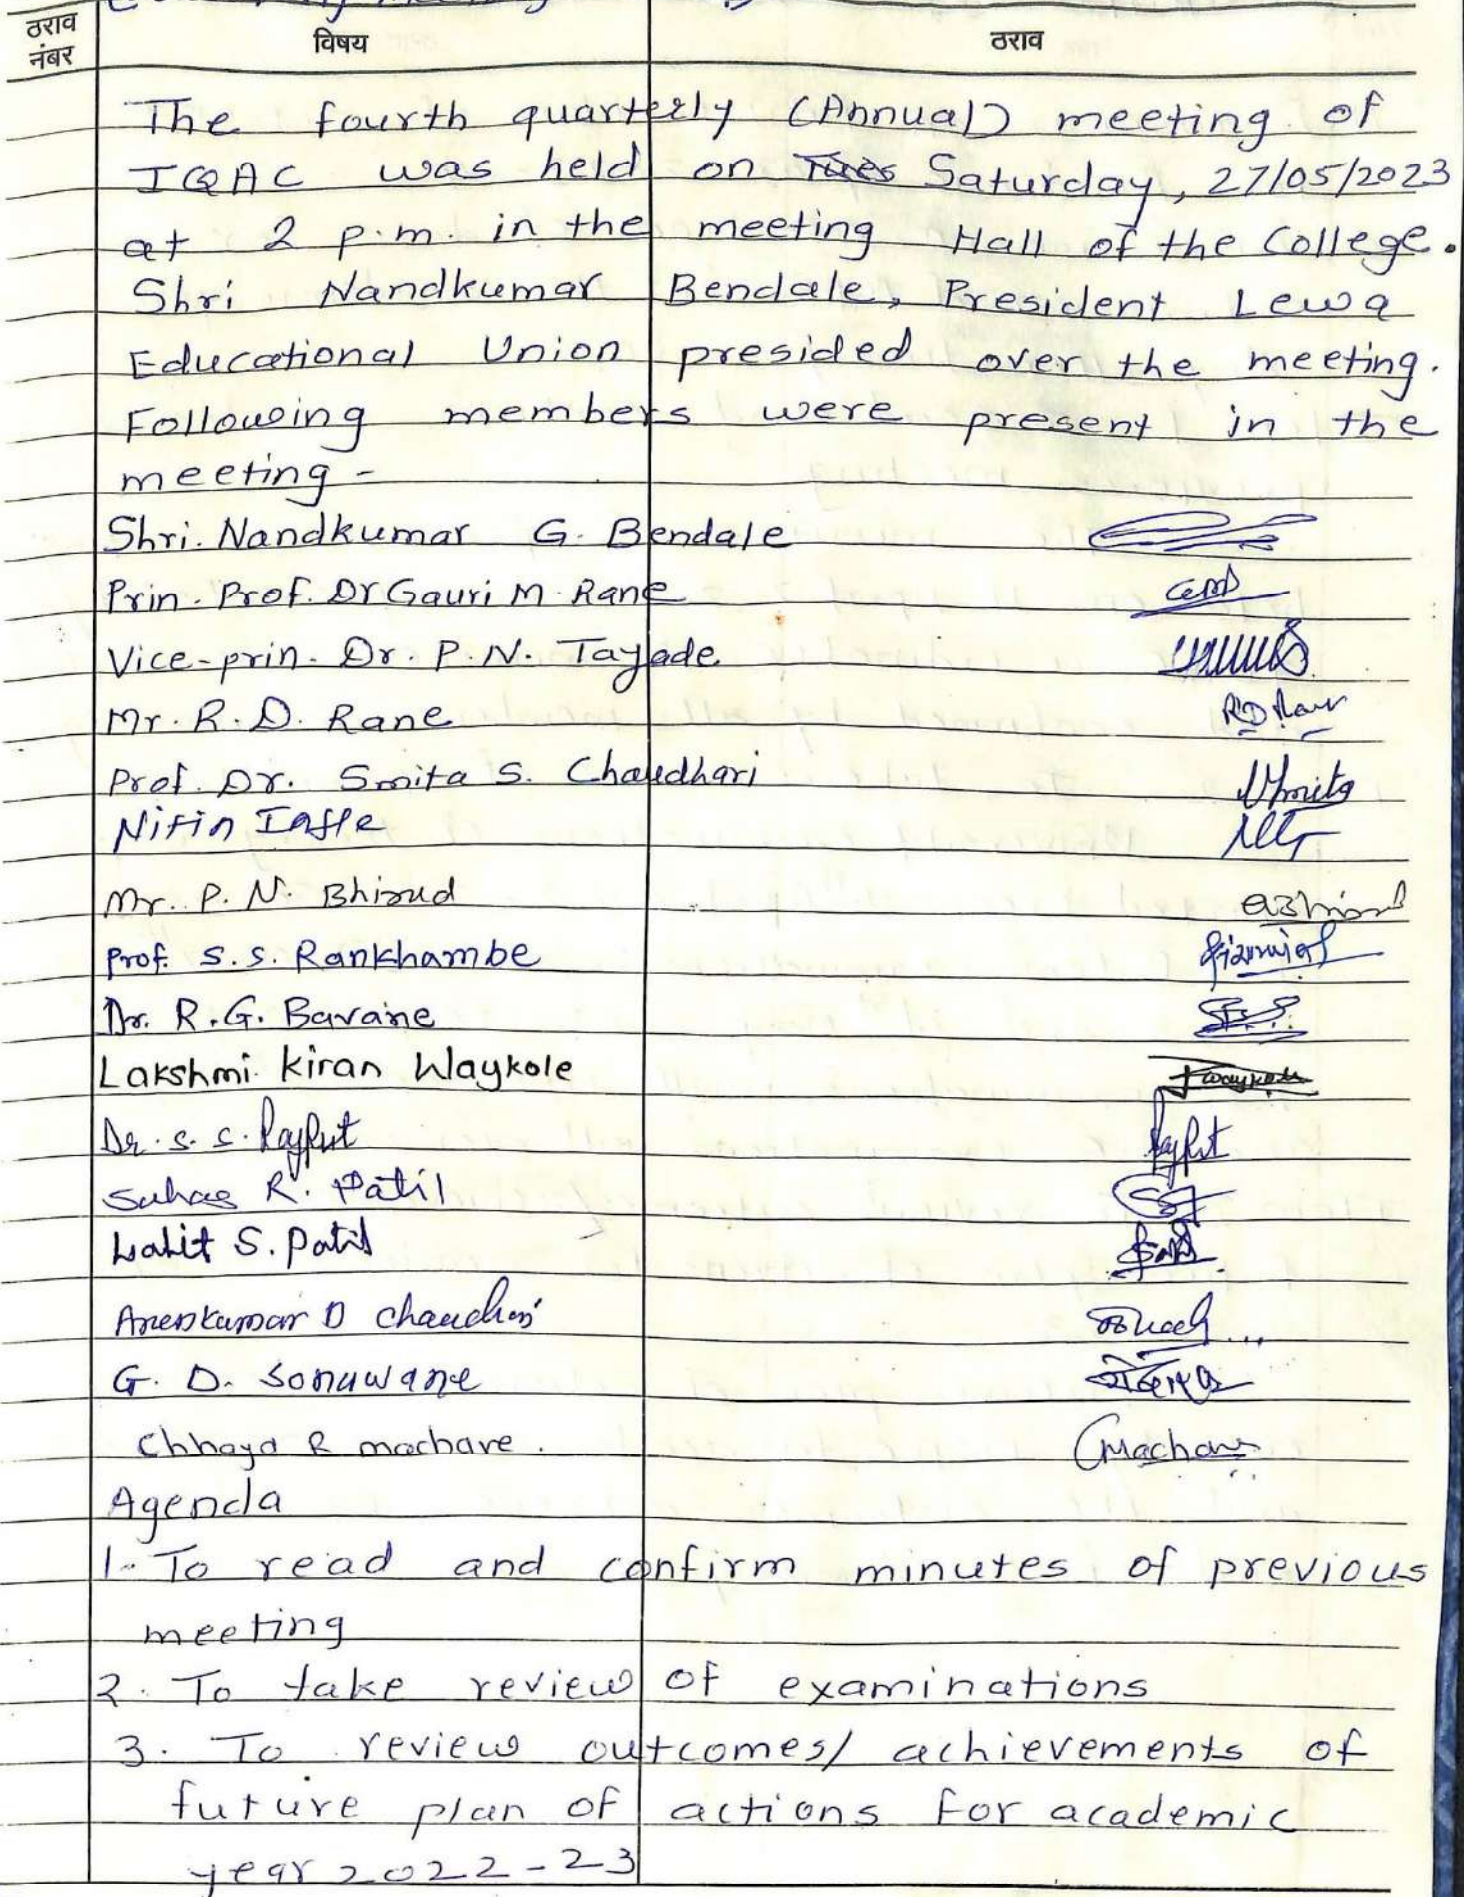 ठराव नंबर विषय ठराव
The fourth quarterly (Annual) meeting of
IQAC was held on Saturday, 27/05/2023
at 2 p.m. in the meeting Hall of the College.
Shri Nandkumar Bendale, President Lewa
Educational Union presided over the meeting.
Following members were present in the
meeting -
Shri. Nandkumar G. Bendale
Prin. Prof. Dr Gauri M. Rane
Vice-prin. Dr. P. N. Tayade
Mr. R. D. Rane
Prof. Dr. Smita S. Chaudhari
Nitin
Mr. P. N. Bhirud
Prof. S. S. Rankhambe
Dr. R. G. Bavane
Lakshmi Kiran Waykole
Dr. S. S. Rajput Rajput
Suhas R. Patil
Lalit S. Patil
D Chaudhari
G. D. Sonawane
Chhaya R machave. CMachave
Agenda
1. To read and confirm minutes of previous
meeting
2. To take review of examinations
3. To review outcomes/ achievements of
future plan of actions for academic
year 2022-23